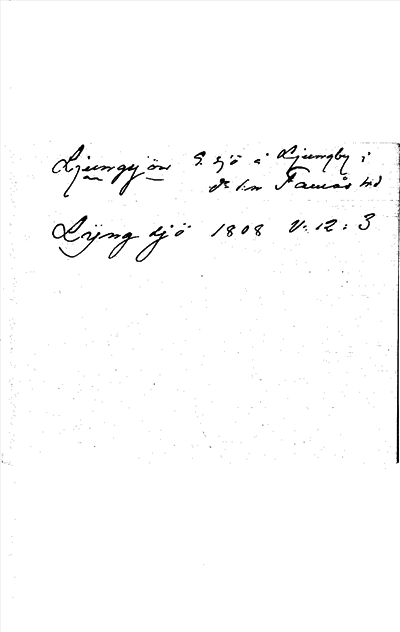 Ljungsjön S. sjö å Ljungby i
ds l:n Faurås hd
Lÿngsjö 1808 V: 12: 3